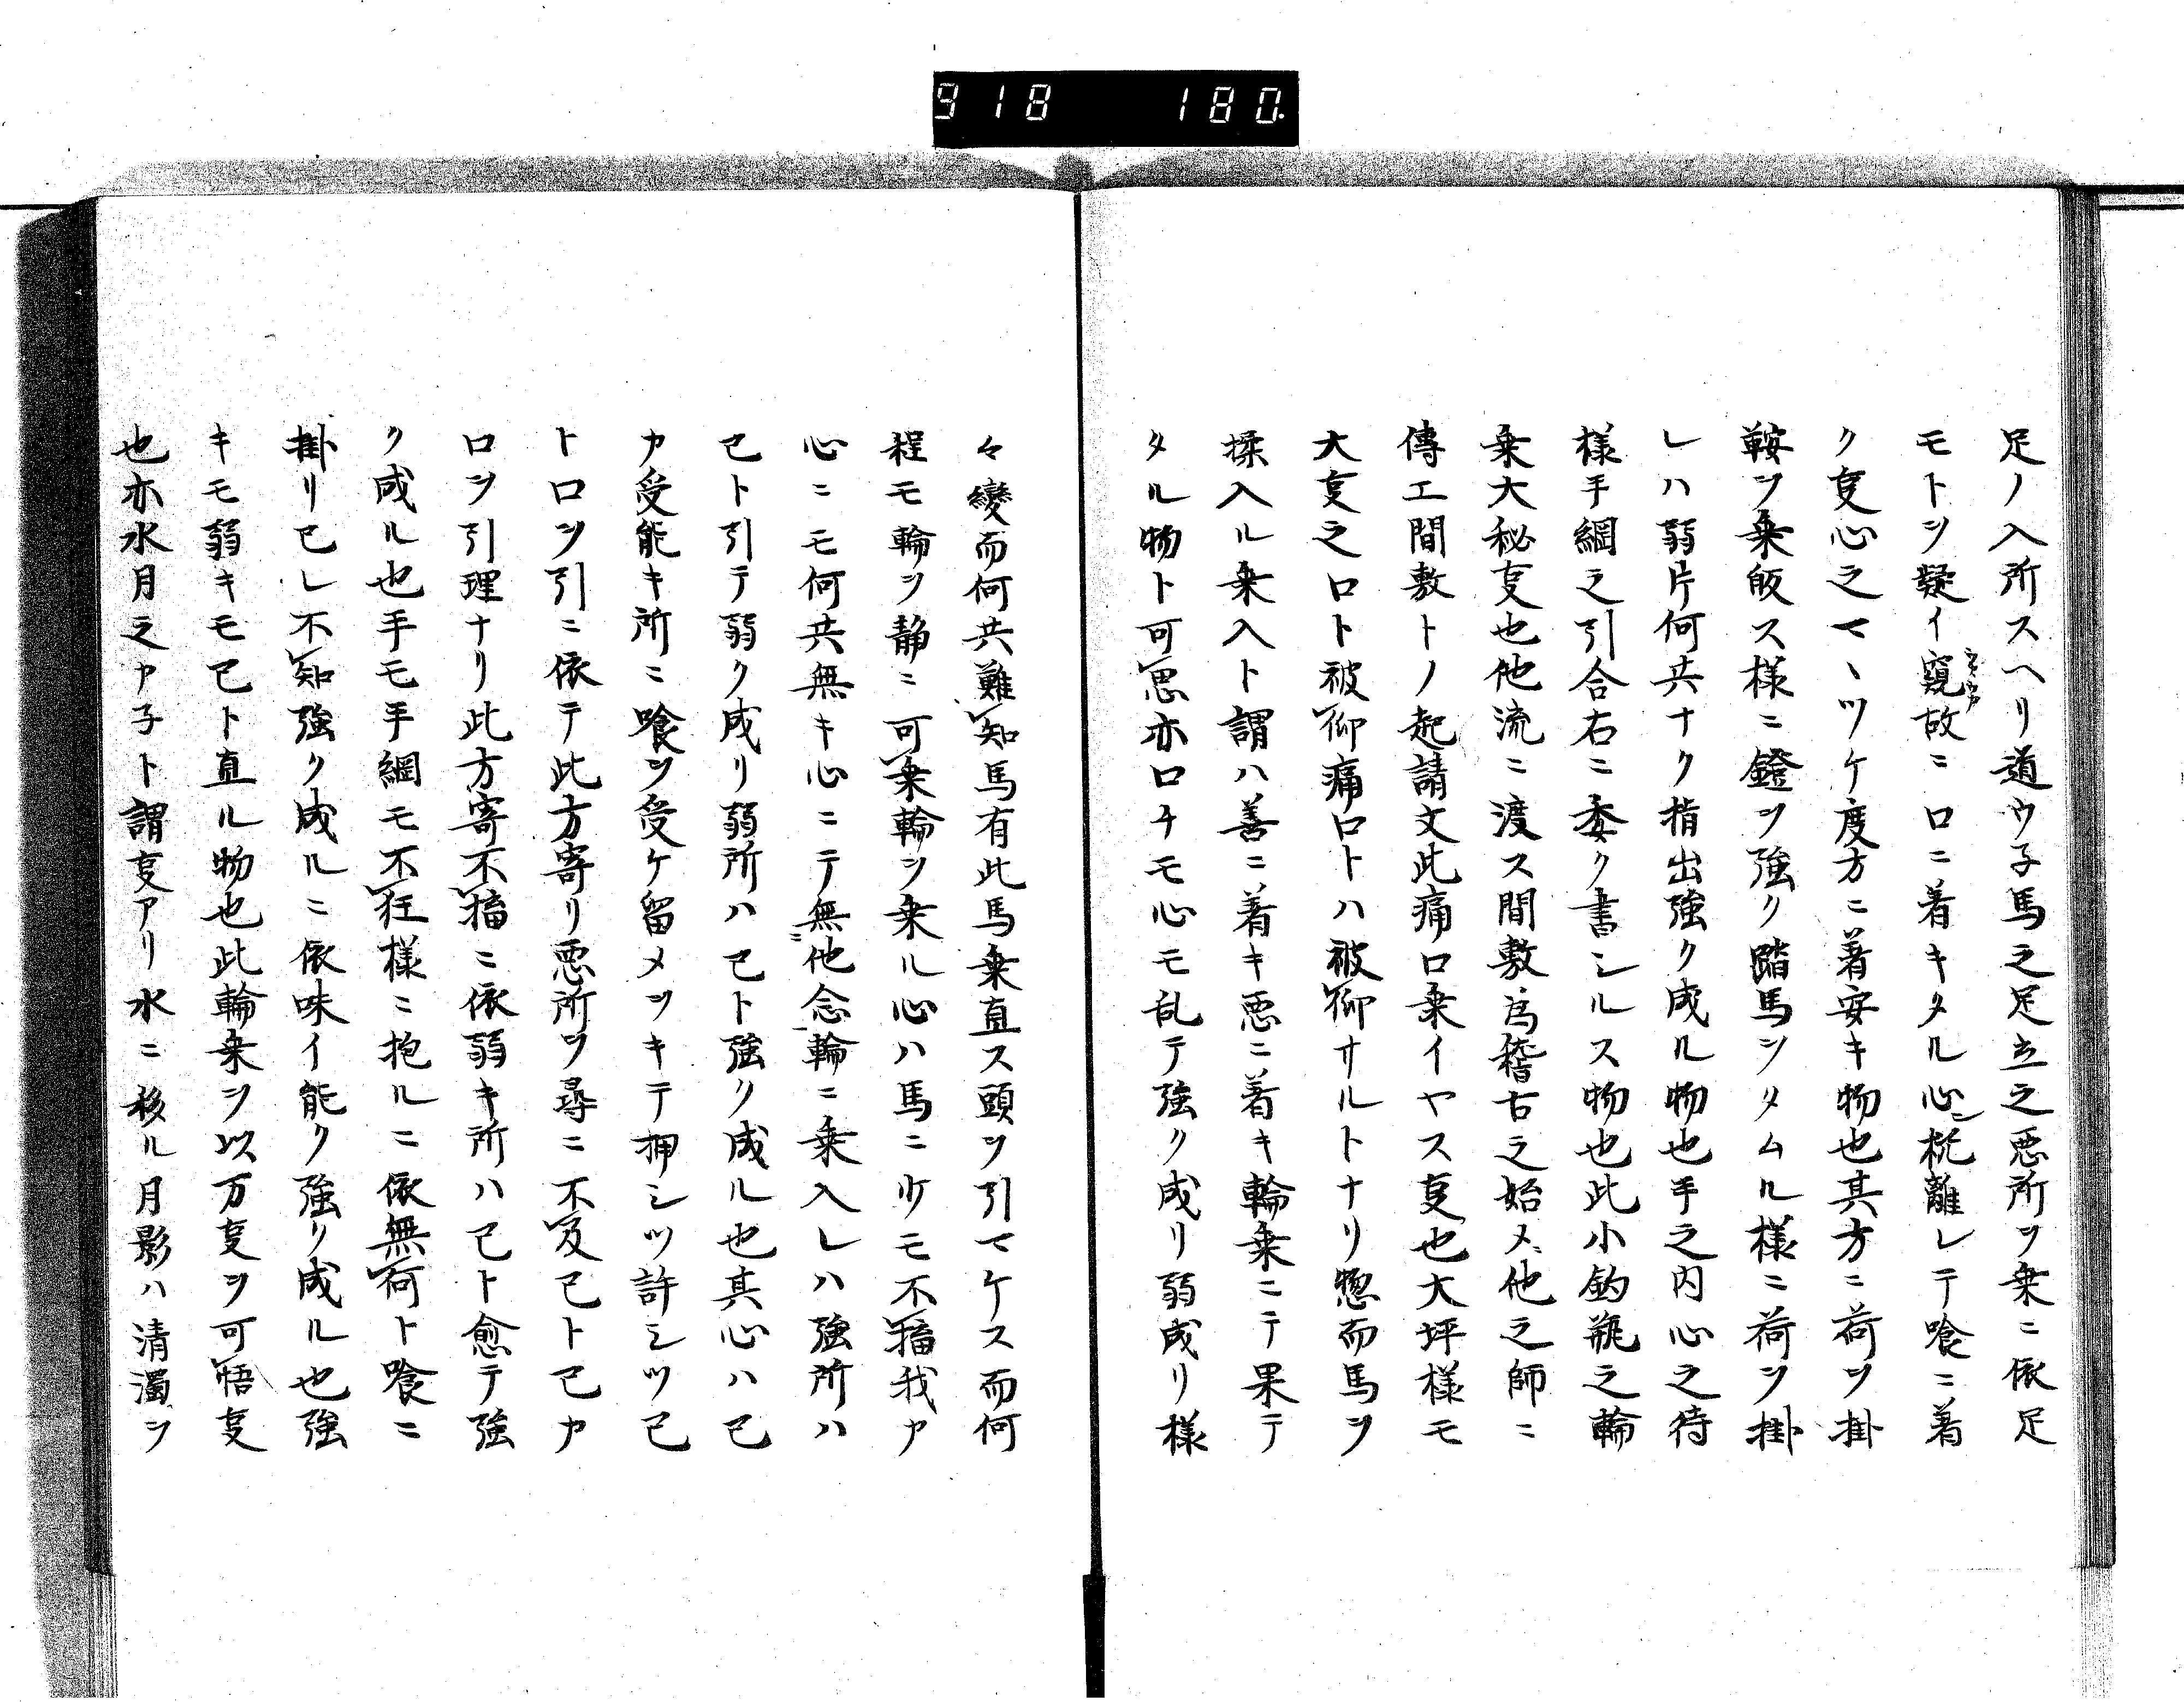 918 180.
足ノ入所スヘリ道ウ子馬之足立之悪所ヲ乗ニ依足
モトヲ疑イ窺故ニ口ニ着キタル心ニ枕離レテ喰ニ着
ク㕝心之マヽツケ度方ニ着安キ物也其方ニ荷ヲ掛
鞍ヲ乗皈ス様ニ鐙ヲ強ク踏馬ヲタムル様ニ荷ヲ掛
レハ弱片何共ナク指出強ク成ル物也手之内心之待
様手綱之引合右ニ委ク書シルス物也此小釣瓶之輪
乗大秘㕝也他流ニ渡ス間敷為稽古之始メ他之師ニ
傳エ間敷トノ起請文此痛口乗イヤス㕝也大坪様モ
大㕝之口ト被仰痛口トハ被仰サルトナリ惣而馬ヲ
揉入ル乗入ト謂ハ善ニ着キ悪ニ着キ輪乗ニテ果テ
タル物ト可思亦口チモ心モ乱テ強ク成リ弱成リ様
々變而何共難知馬有此馬乗直ス頭ヲ引マケス而何
程モ輪ヲ静ニ可乗輪ヲ乗ル心ハ馬ニ少モ不搐我ア
心ニモ何共無キ心ニテ無他念輪ニ乗入レハ強所ハ
已ト引テ弱ク成リ弱所ハ已ト強ク成ル也其心ハ已
カ受能キ所ニ喰ヲ受ケ留メツキテ押シツ許シツ已
ト口ヲ引ニ依テ此方寄リ悪所ヲ尋ニ不及已ト已カ
口ヲ引理ナリ此方寄不搐ニ依弱キ所ハ已ト愈テ強
ク成ル也手モ手綱モ不狂様ニ抱ルニ依無何ト喰ニ
掛リ已レ不知強ク成ルニ依味イ能ク強ク成ル也強
キモ弱キモ已ト直ル物也此輪乗ヲ以万㕝ヲ可悟㕝
也亦水月之ア子ト謂㕝アリ水ニ移ル月影ハ清濁ヲ